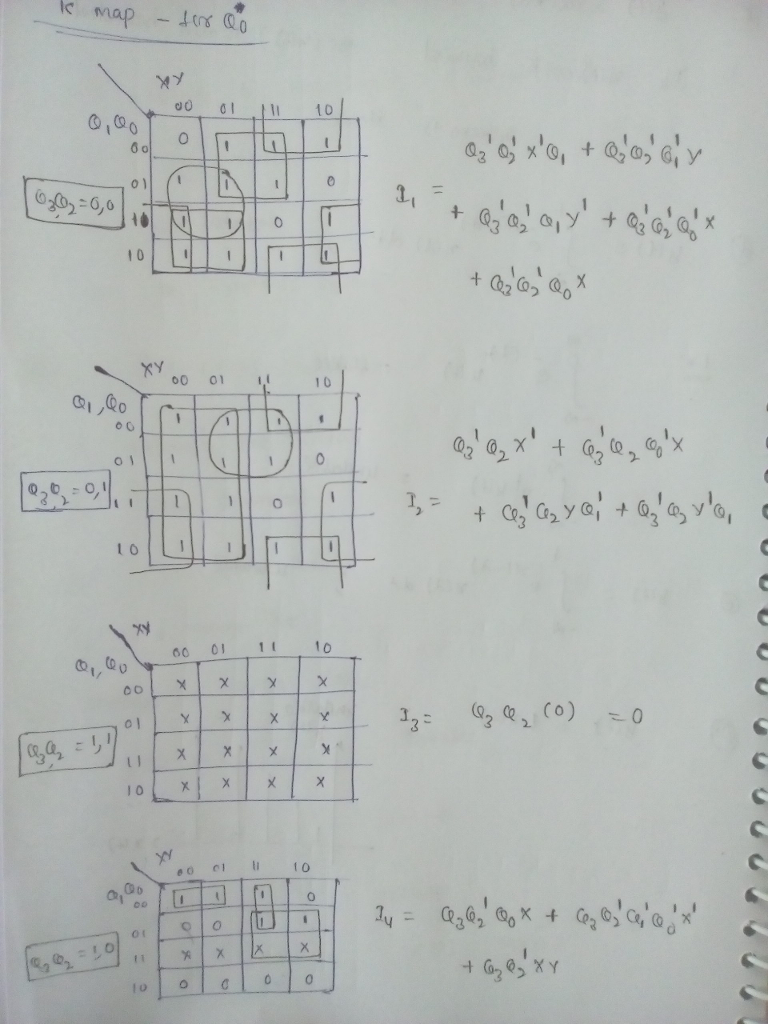 K map - for Q0*
XY
00 01 11 10
Q1Q0
00 0 1 1 1
01 1 1 1 0
11 1 1 0 1
10 1 1 1 1
Q3Q2=0,0
I1 = Q3'Q2'X'Q1 + Q3'Q2'Q1'Y
+ Q3'Q2'Q1Y' + Q3'Q2'Q0'X
+ Q3'Q2'Q0X
XY
00 01 11 10
Q1,Q0
00 1 1 1 1
01 1 1 1 0
11 1 1 0 1
10 1 1 1 1
Q3Q2=0,1
I2 = Q3'Q2X' + Q3'Q2Q0'X
+ Q3'Q2YQ1' + Q3'Q2Y'Q1
XY
00 01 11 10
Q1,Q0
00 X X X X
01 X X X X
11 X X X X
10 X X X X
Q3Q2=1,1
I3 = Q3Q2(0) = 0
XY
00 01 11 10
Q1Q0
00 1 1 1 0
01 0 0 1 1
11 X X X X
10 0 0 0 0
Q3Q2=1,0
I4 = Q3Q2'Q0X + Q3Q2'Q1'Q0'X'
+ Q3Q2'XY